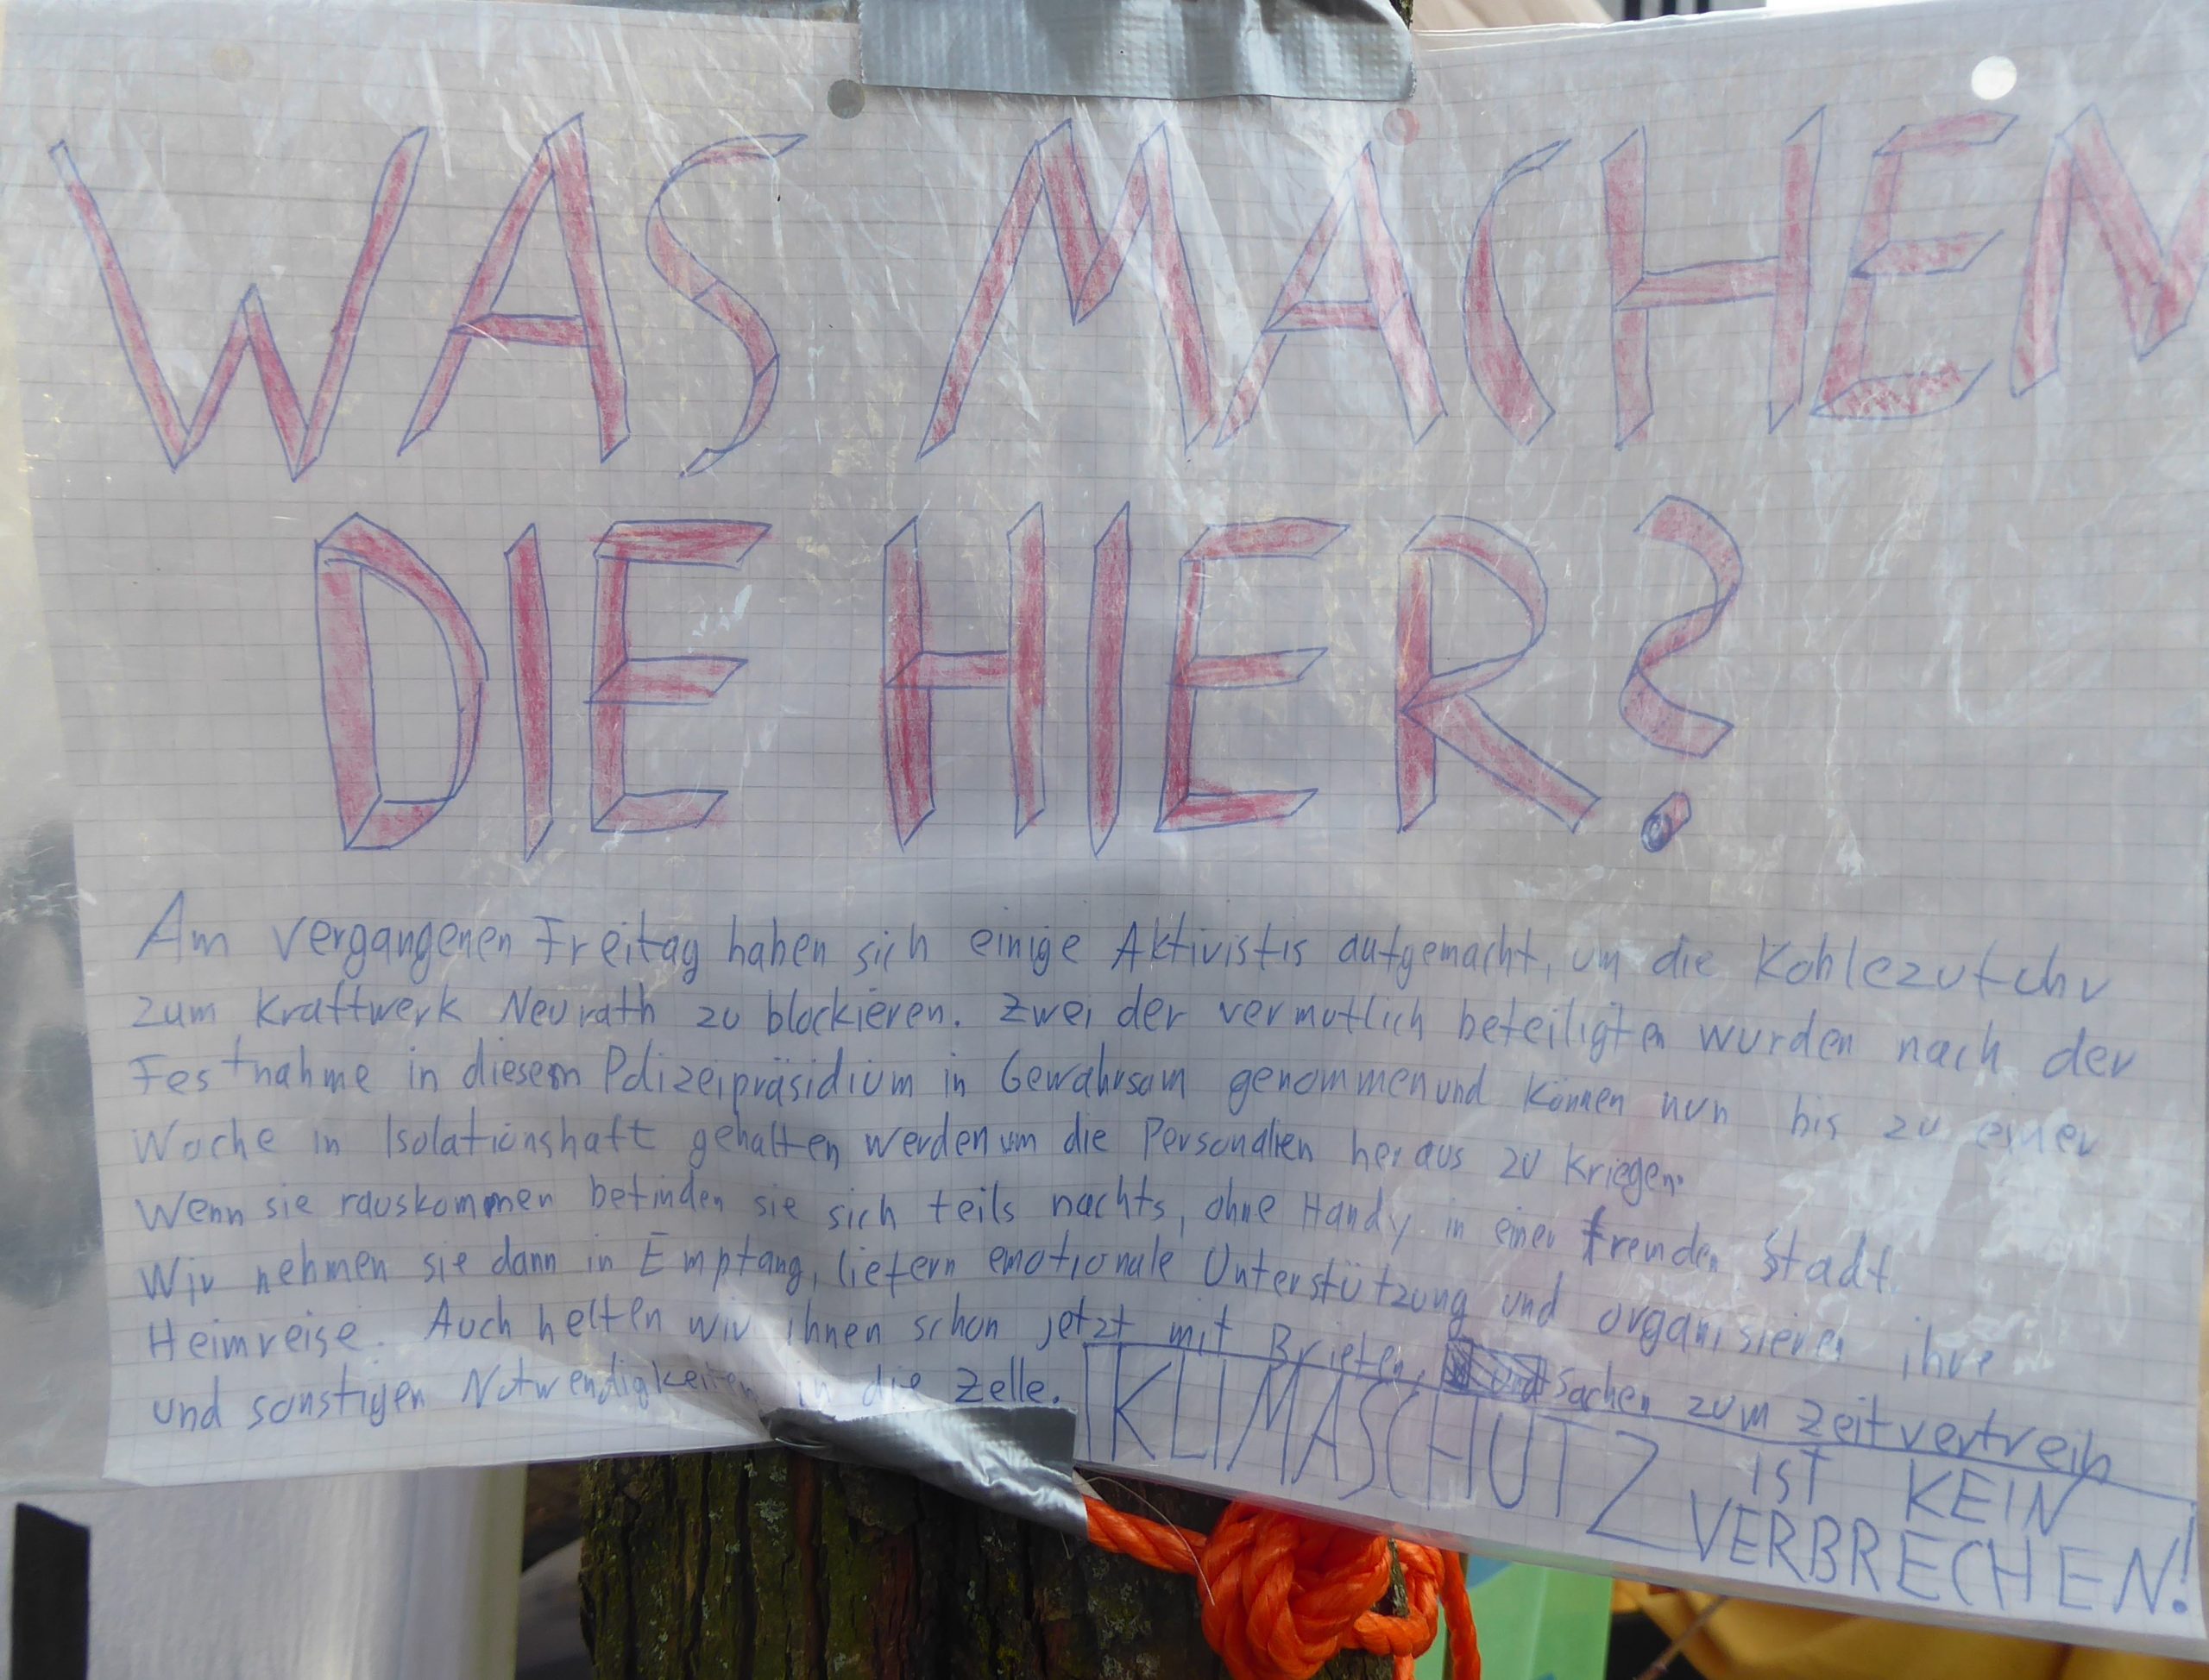 WAS MACHEN
DIE HIER?
Am vergangenen Freitag haben sich einige Aktivistis aufgemacht, um die Kohlezufuhr
zum Kraftwerk Neurath zu blockieren. Zwei der vermutlich beteiligten wurden nach der
Festnahme in diesem Polizeipräsidium in Gewahrsam genommen und können nun bis zu einer
Woche in Isolationshaft gehalten werden um die Personalien heraus zu kriegen.
Wenn sie rauskommen befinden sie sich teils nachts, ohne Handy in einer fremden Stadt.
Wir nehmen sie dann in Empfang, liefern emotionale Unterstützung und organisieren ihre
Heimreise. Auch helfen wir ihnen schon jetzt mit Briefen, Sachen zum Zeitvertreib
und sonstigen Notwendigkeiten in die Zelle.
KLIMASCHUTZ IST KEIN
VERBRECHEN!